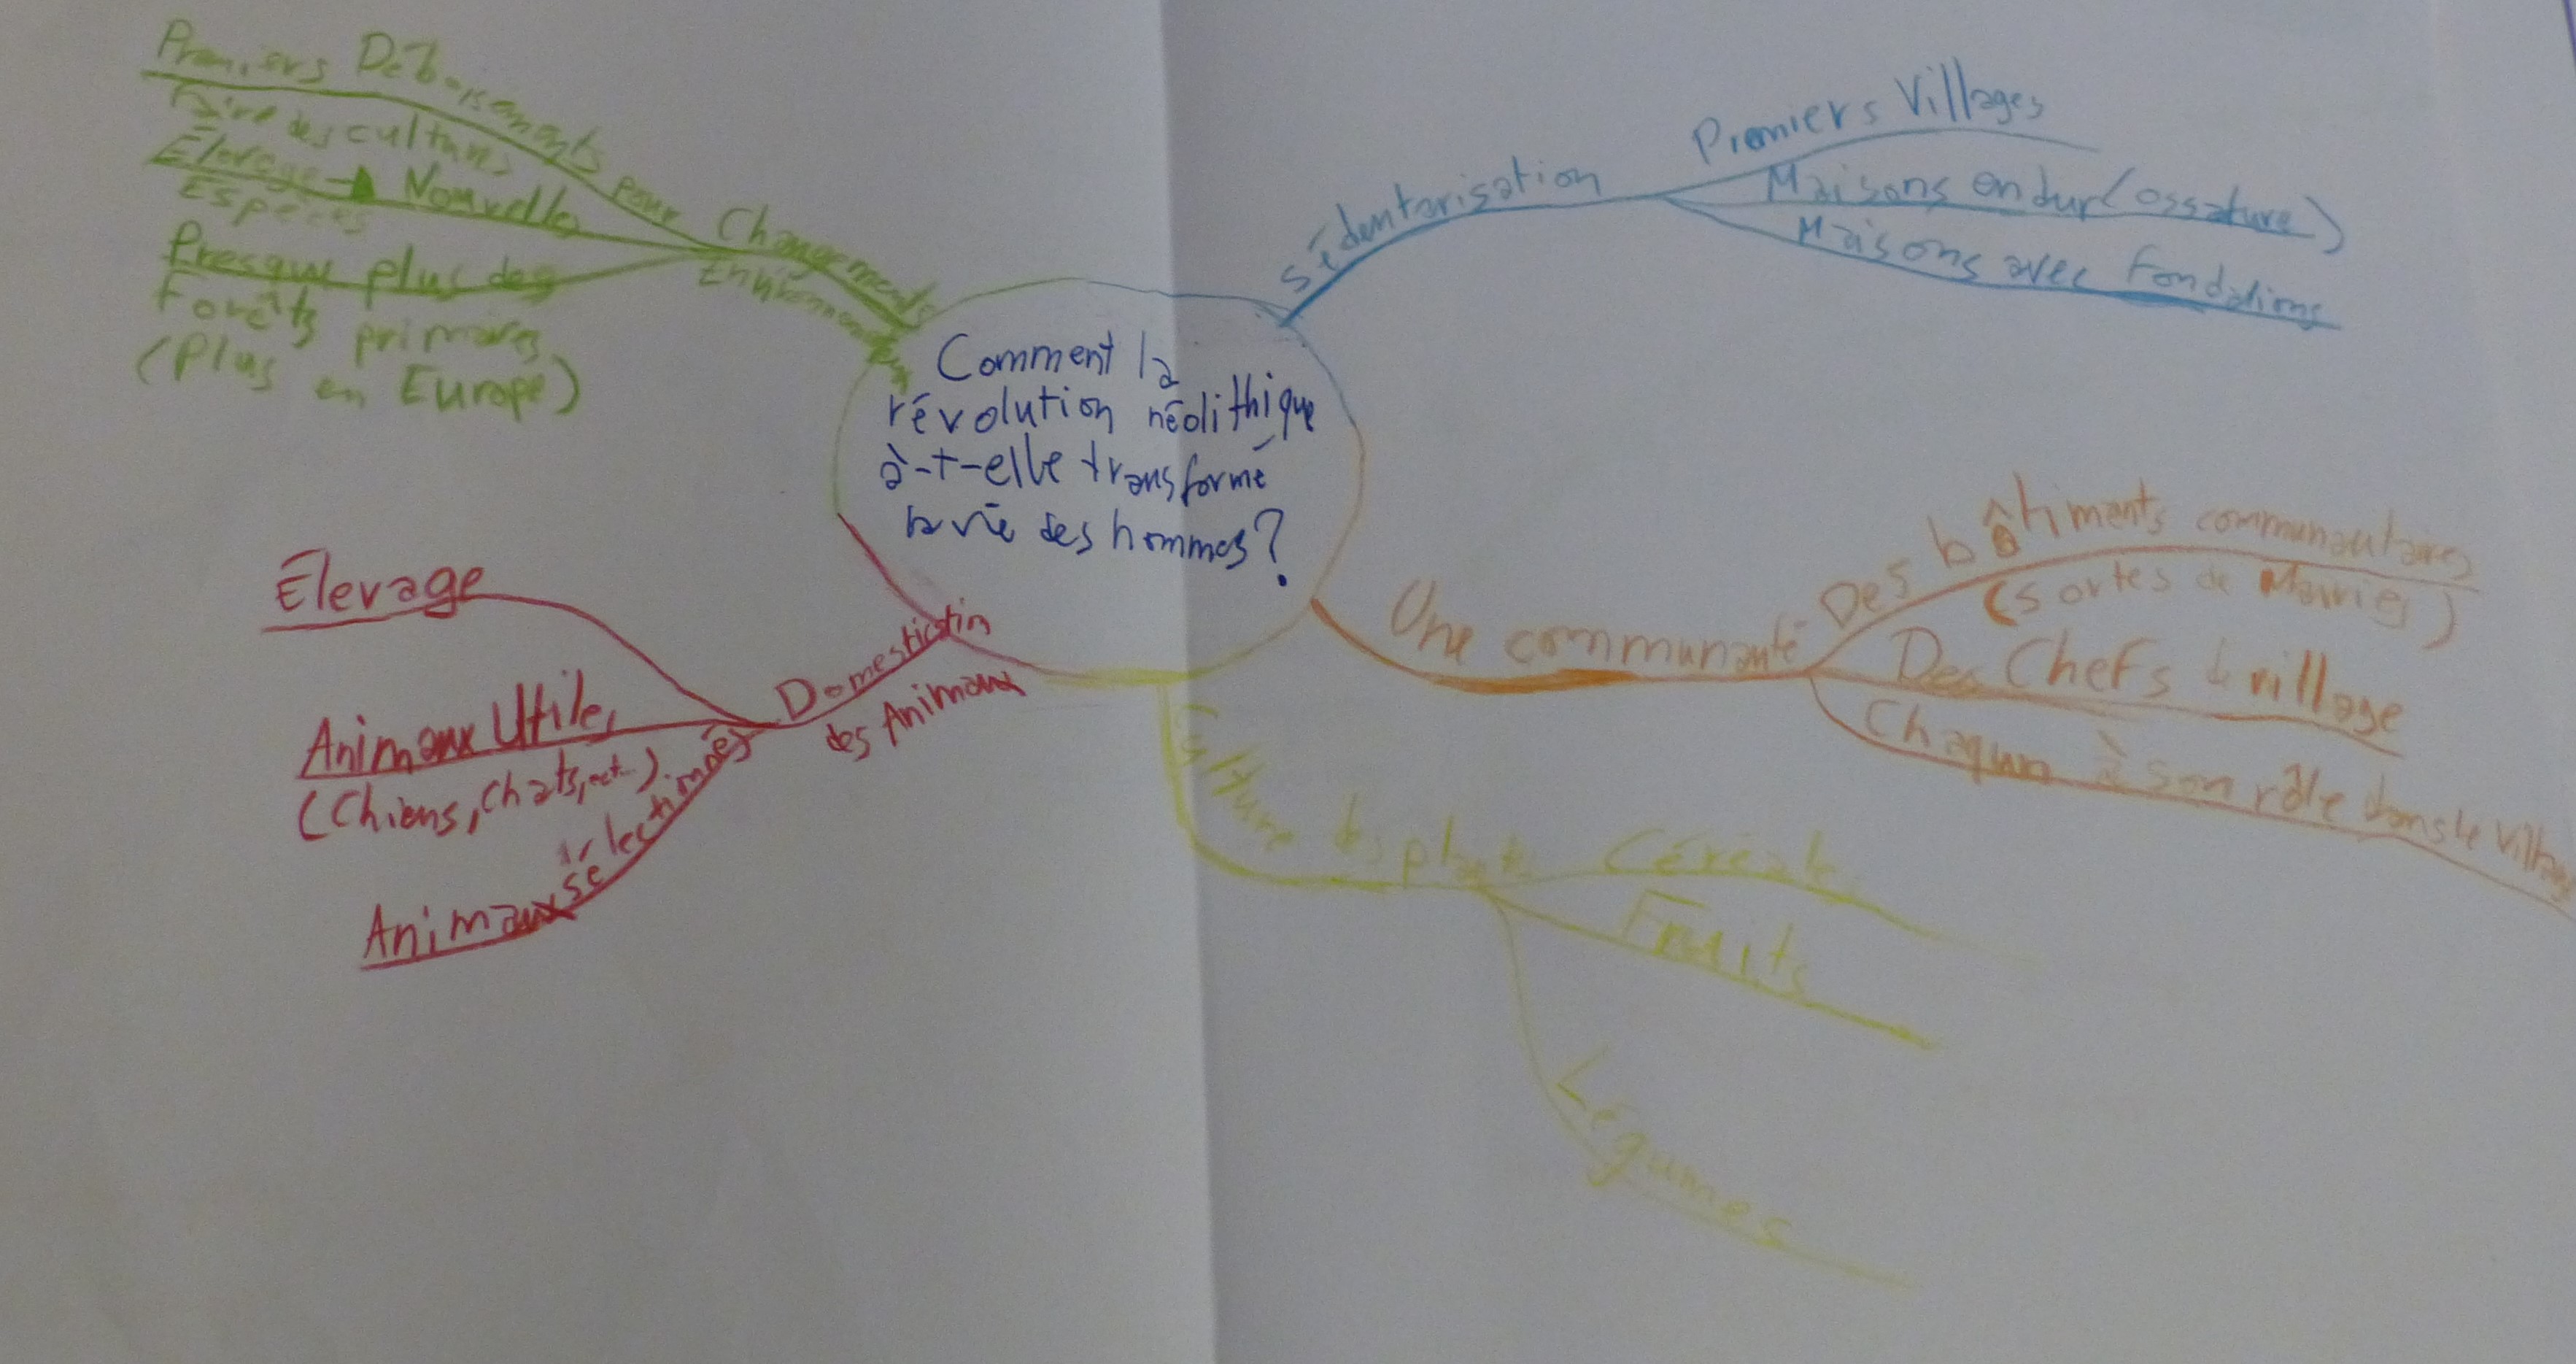 Comment la
révolution néolithique
à-t-elle transformé
la vie des hommes?
Sédentarisation
Premiers Villages
Maisons en dur (ossature)
Maisons avec Fondations
Une communauté
Des bâtiments communautaires
(sortes de Mairies)
Des Chefs de village
Chaqun à son rôle dans le village
Culture des plantes
Céréales
Fruits
Légumes
Domestication
des Animaux
Élevage
Animaux Utiles
(Chiens, Chats, ect...)
Animaux sélectionnés
Changements
Environnementaux
Premiers Déboisements pour
Faire des cultures
Élevage → Nouvelles
Espèces
Presque plus des
Forêts primaires
(Plus en Europe)